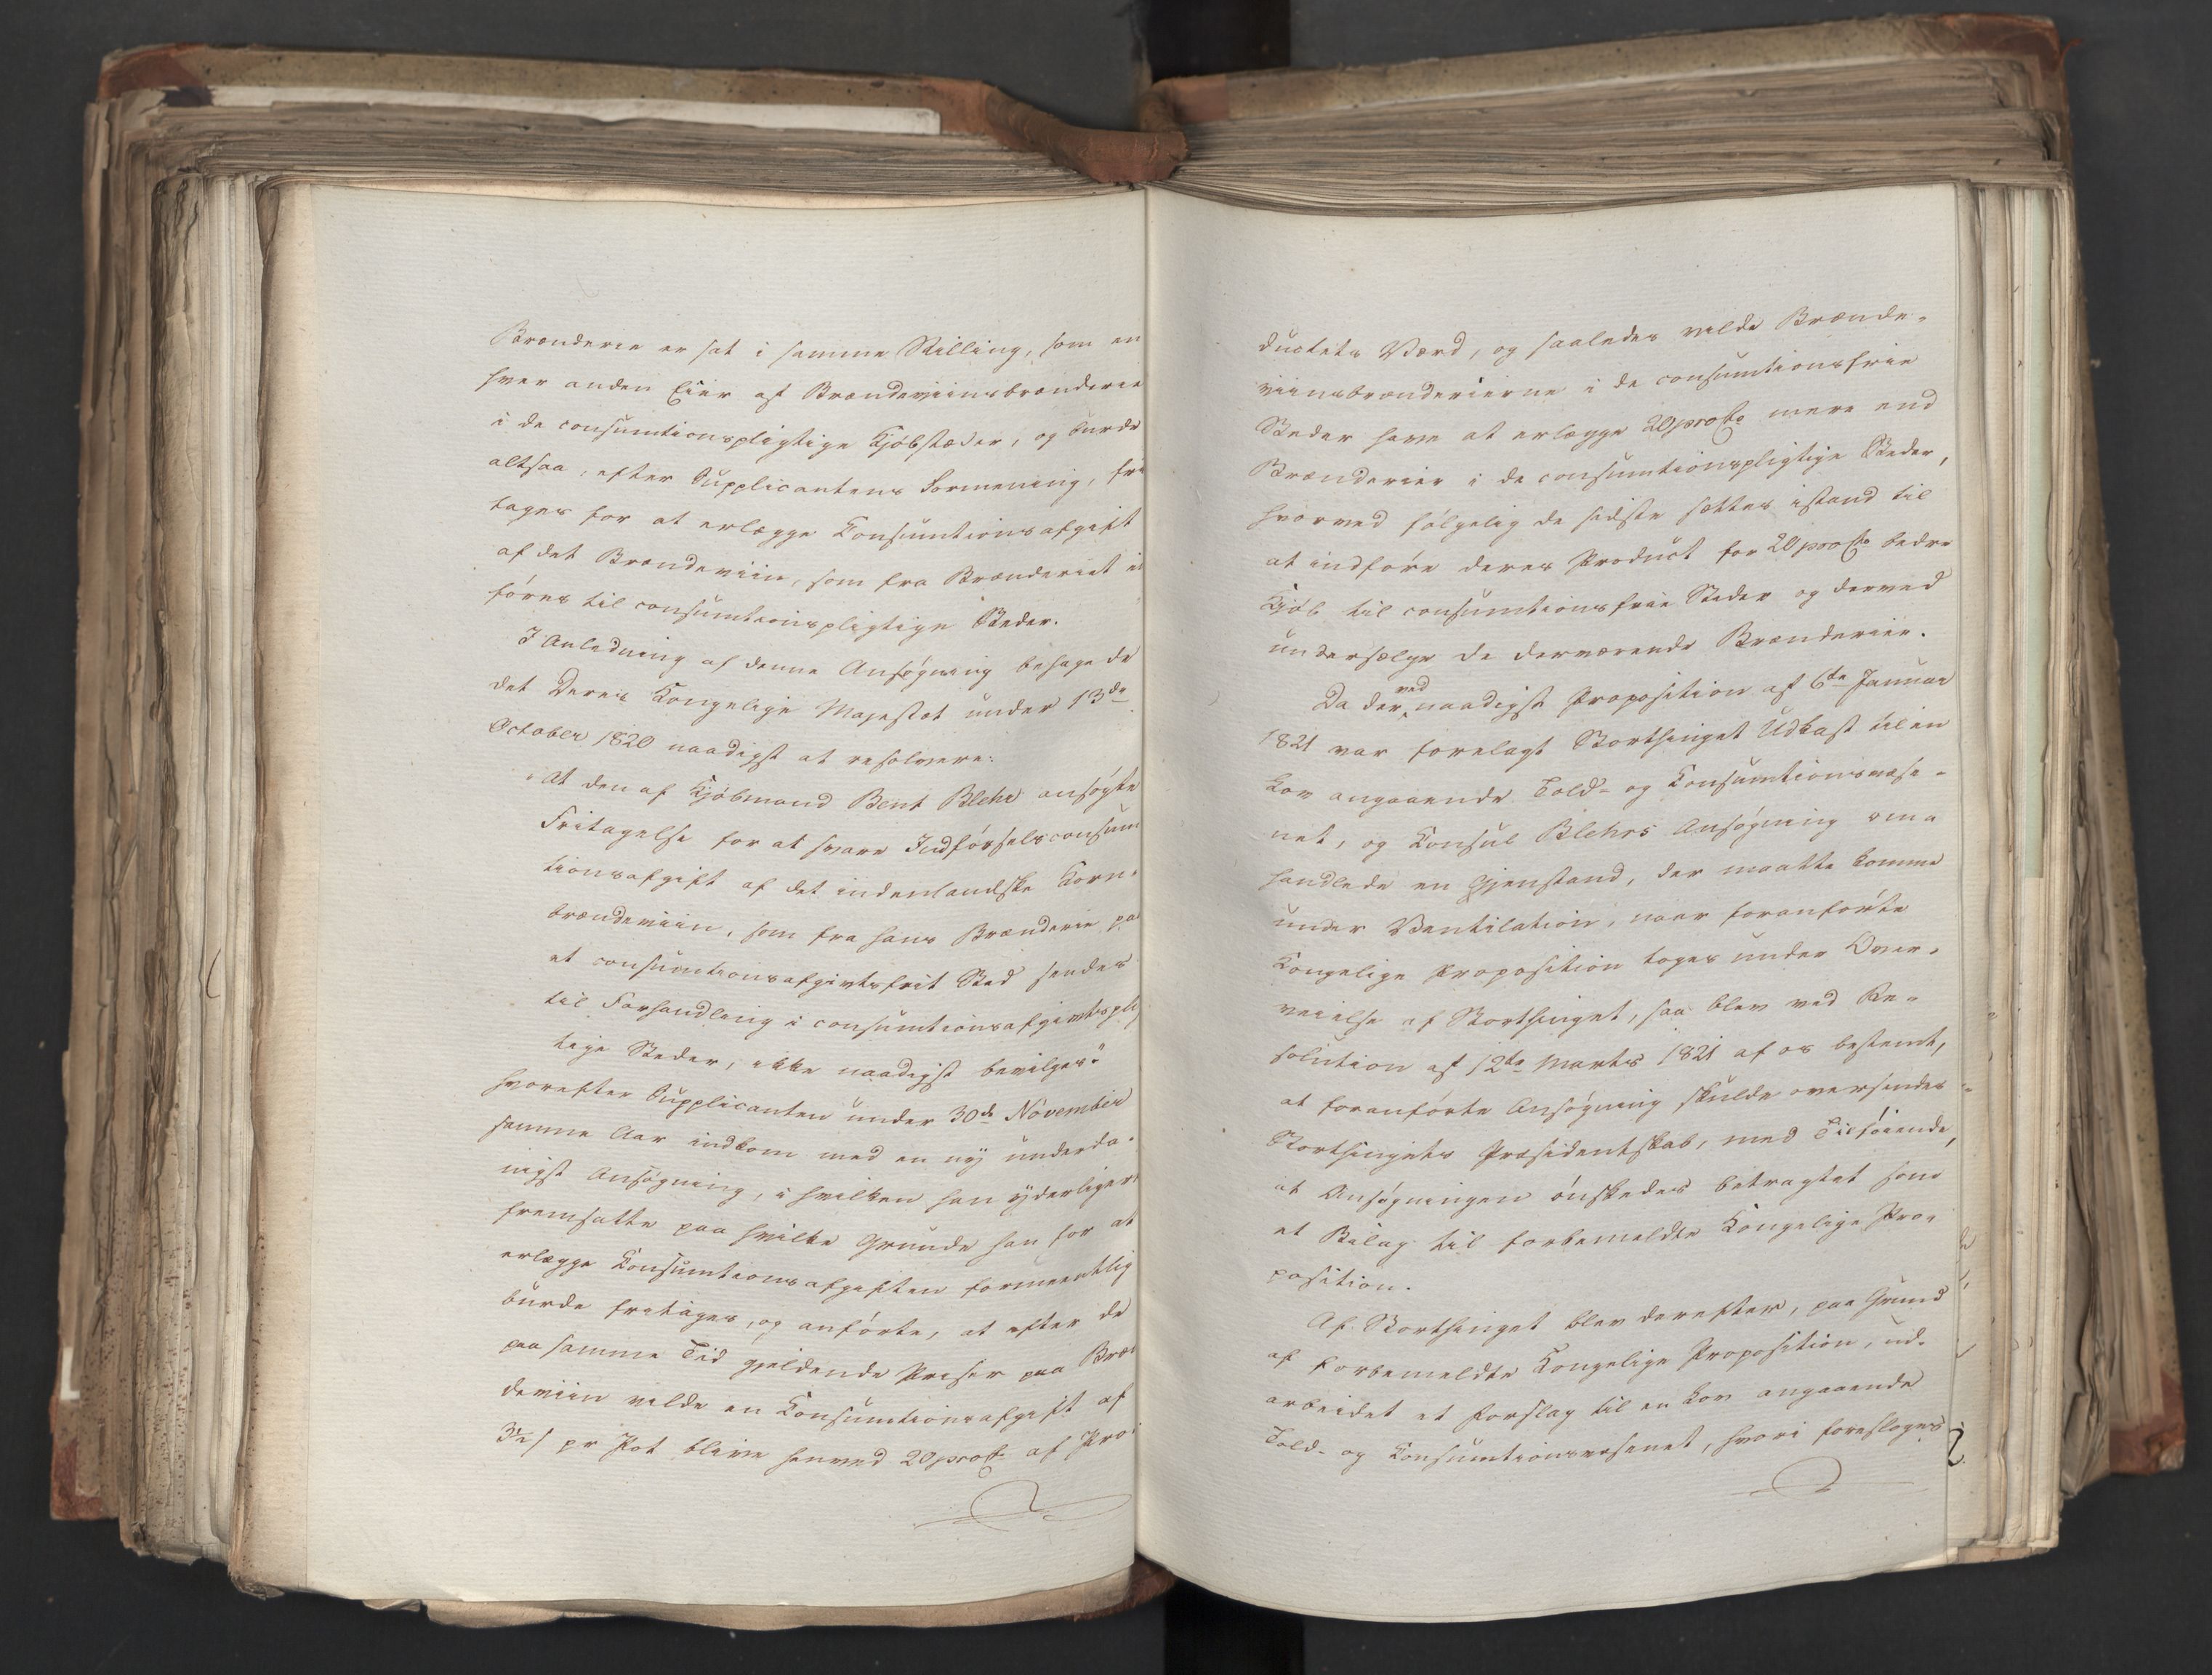 Brænderie er sat i samme Stilling, som en
hver anden Eier af Brændeviinsbrænderie
i de consumtionspligtige Kjøbstæder, og burde
altsaa, efter Supplicantens Formening, fri
tages for at erlægge Consumtionsafgift
af det Brændeviin, som fra Brænderiet i
føres til consumtionspligtige Steder.
I Anledning af denne Ansøgning behagede
det Deres Kongelige Majestæt under 13de
October 1820 naadigst at resolvere:
"At den af Kjøbmand Bent Blehr ansøgte
Fritagelse for at svare Indførselsconsum
tionsafgift af det indenlandske Korn-
brændeviin, som fra hans Brænderie paa
et consumtionsafgivtsfrit Sted sendes
til Forhandling i consumtionsafgivtsplig
tige Steder, ikke naadigst bevilges"
hvorefter Supplicanten under 30de November
samme Aar indkom med en ny underda-
nigst Ansøgning, i hvilken han yderligere
fremsatte paa hvilke Grunde han for at
erlægge Consumtionsafgiften formeentlig
burde fritages, og anførte, at efter de
paa samme Tid gjeldende Priser paa Bræn
deviin vilde en Consumtionsafgift af
3½ s pr Pot blive henved 20 proCt. af Pro-
ductets Værd, og saaledes vilde Brænde-
viinsbrænderierne i de consumtionsfrie
Steder have at erlægge 20 proCto mere end
Brænderier i de consumtionspligtige Steder,
hvorved følgelig de sidste sættes istand til
at indføre deres Product for 20 proCto bedre
Kjøb til consumtionsfrie Steder og derved
undersælge de derværende Brænderier.
Da der ved naadigst Proposition af 6te Januar
1821 var forelagt Storthinget Udkast til en
Lov angaaende Told- og Consumtionsvæse-
net, og Consul Blehrs Ansøgning om-
handlede en Gjenstand, der maatte komme
under Ventilation, naar foranførte
Kongelige Proposition toges under Over-
veielse af Storthinget, saa blev ved Re-
solution af 12te Marts 1821 af os bestemt,
at foranførte Ansøgning skulde oversendes
Storthingets Præsidentskab, med Tilføiende,
at Ansøgningen ønskedes betragtet som
et Bilag til forbemeldte Kongelige Pro-
position.
Af Storthinget blev derefter, paa Grund
af forbemeldte Kongelige Proposition, ud-
arbeidet et Forslag til en Lov angaaende
Told- og Consumtionsvæsenet, hvori foresloges